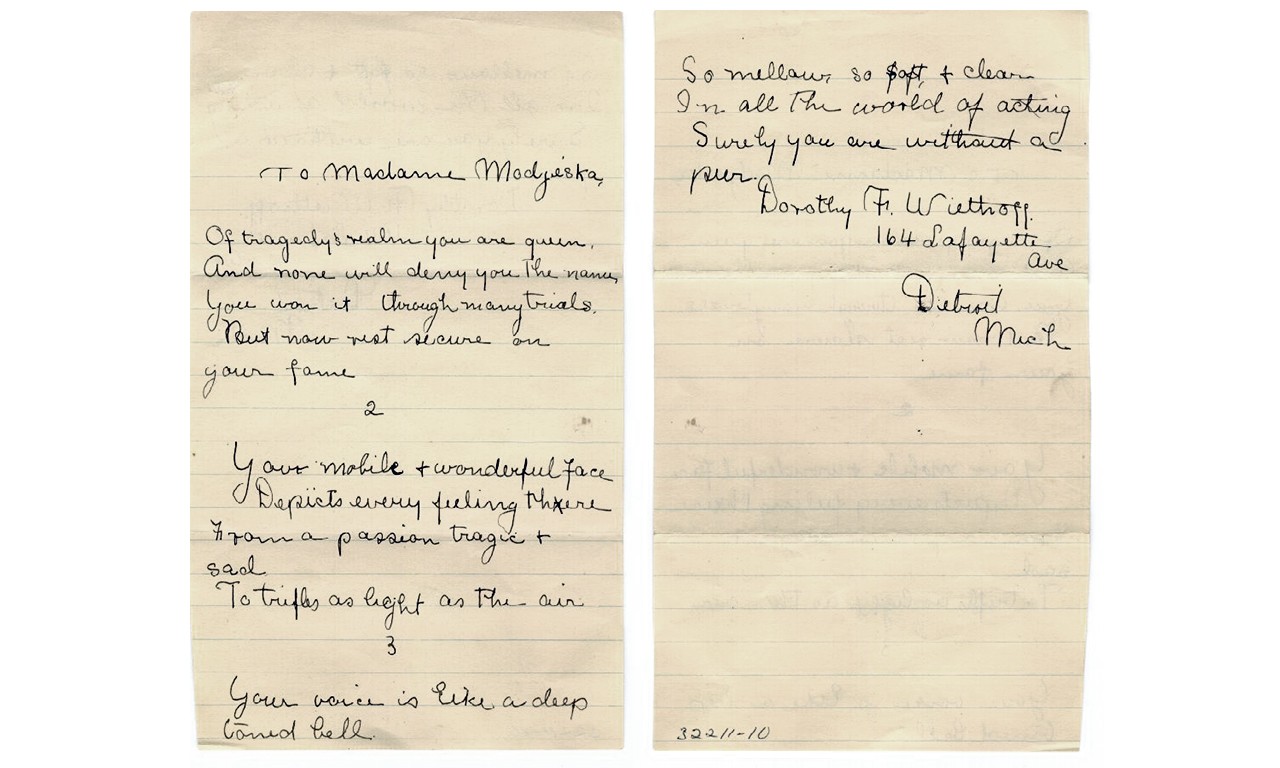 To Madame Modjeska,
Of tragedy's realm you are queen,
And none will deny you the name,
You won it through many trials.
But now rest secure on
your fame
2
Your mobile + wonderful face
Depicts every feeling there
From a passion tragic +
sad
To trifles as light as the air
3
Your voice is like a deep
toned bell.
So mellow, so soft, + clear
In all the world of acting
Surely you are without a
peer.
Dorothy F. Wiethoff.
164 Lafayette
Ave
Detroit
Mich
32211-10